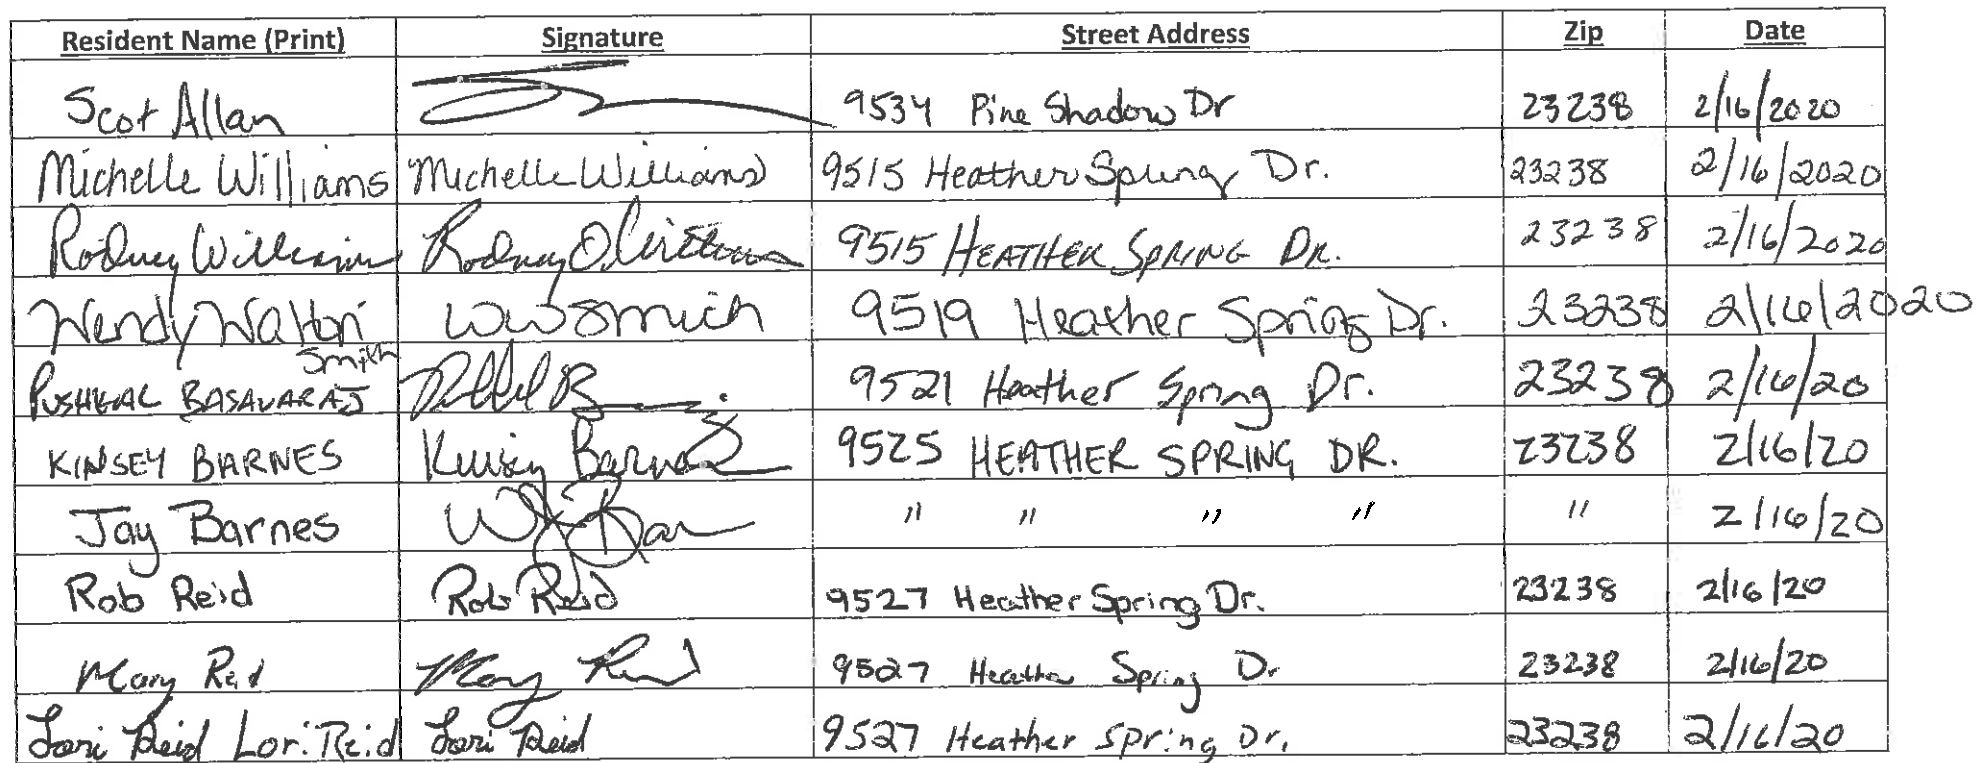 Resident Name (Print) Signature Street Address Zip Date
Scot Allan 9534 Pine Shadow Dr 23238 2/16/2020
Michelle Williams Michelle Williams 9515 Heather Spring Dr. 23238 2/16/2020
Rodney Williams Rodney O. Williams 9515 HEATHER SPRING DR. 23238 2/16/2020
Wendy Walton WWSmith 9519 Heather Spring Dr. 23238 2/16/2020
Smith
PUSHKAL BASAVARAJ 9521 Heather Spring Dr. 23238 2/16/20
KINSEY BARNES Kinsey Barnes 9525 HEATHER SPRING DR. 23238 2/16/20
Jay Barnes " " " " " 2/16/20
Rob Reid Rob Reid 9527 Heather Spring Dr. 23238 2/16/20
Mary Reid Mary Reid 9527 Heather Spring Dr 23238 2/16/20
Lori Reid Lori Reid Lori Reid 9527 Heather Spring Dr. 23238 2/16/20